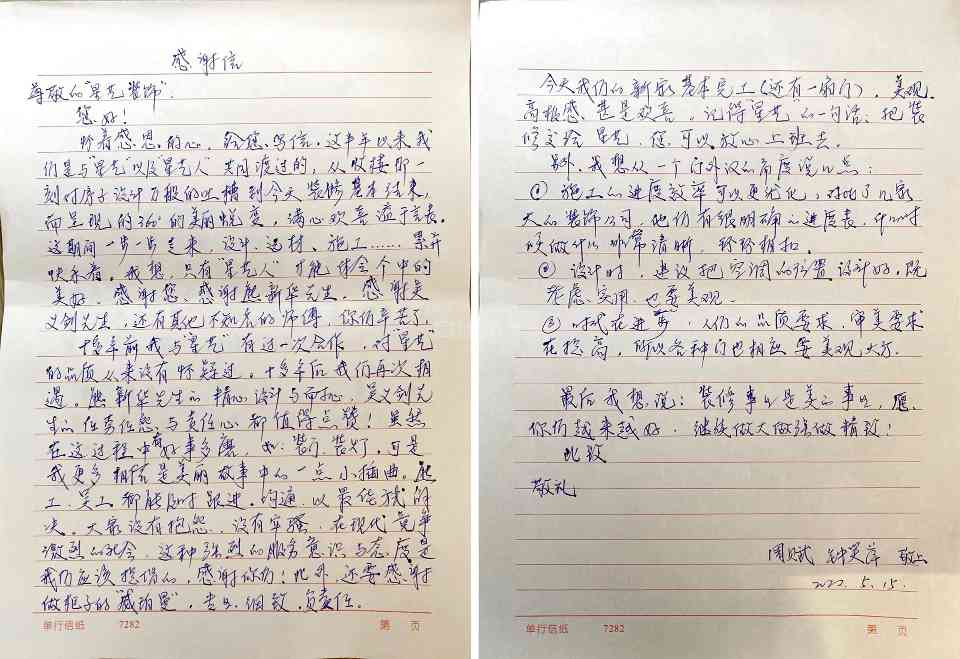 感谢信
尊敬的“星艺装饰”:
您好!
怀着感恩的心,给您写信。这半年以来我
们是与“星艺”以及“星艺人”共同渡过的,从收楼那一
刻对房子设计万般的吐槽到今天装修基本结束,
而呈现的360°的美丽蜕变,满心欢喜溢于言表。
这期间一步一步走来,设计、选材、施工……累并
快乐着。我想,只有“星艺人”才能体会个中的
美好。感谢您、感谢熊新华先生,感谢吴
义剑先生,还有其他不知名的师傅,你们辛苦了。
十多年前我与“星艺”有过一次合作,对“星艺”
的品质从来没有怀疑过。十多年后我们再次相
遇。熊新华先生的精心设计与布局,吴义剑先
生的任劳任怨与责任心都值得点赞!虽然
在这过程中有好事多磨,如:装门、装灯,可是
我更多相信是美丽故事中的一点小插曲。熊
工、吴工都能及时跟进,沟通,以最佳的
决。大家没有抱怨、没有牢骚,在现代竞争
激烈的社会,这种强烈的服务意识与态度是
我们应该提倡的,感谢你们!此外,还要感谢
做柜子的“威珀曼”,专业、细致、负责任。
单行信纸 7282 第 页
今天我们的新家基本完工(还有一扇门),美观、
高档感、甚是欢喜。记得“星艺”的一句话:把装
修交给星艺,您可以放心上班去。
另外,我想从一个门外汉的角度说几点:
① 施工的进度效率可以更优化,对比了几家
大的装饰公司,他们有很明确的进度表,什么时
候做什么非常清晰,环环相扣。
② 设计时,建议把空调的位置设计好,既
考虑实用、也要美观。
③ 时代在进步,人们的品质要求,审美要求
在提高,所以各种门也相应要美观大方。
最后我想说:装修事业是美的事业,愿
你们越来越好,继续做大做强做精致!
此致
敬礼
钟笑萍 敬上
2022.5.15.
单行信纸 7282 第 页